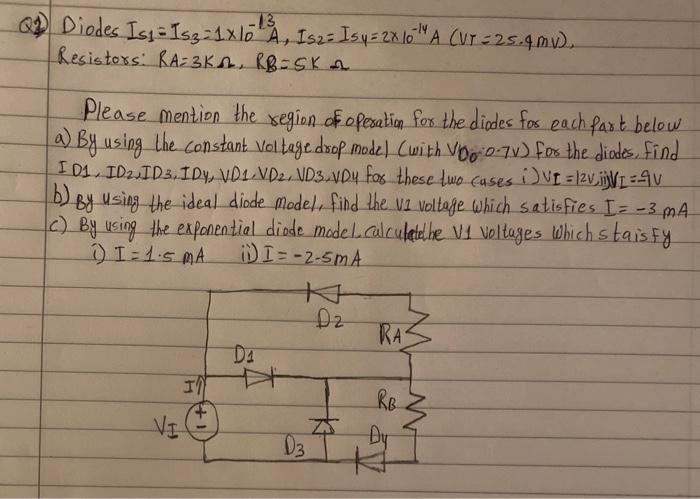 Q1) Diodes IS1 = IS3 = 1x10^-13 A, IS2 = IS4 = 2x10^-14 A (VT = 25.9 mV),
Resistors: RA = 3K Ω, RB = 5K Ω
Please mention the region of operation for the diodes for each part below
a) By using the constant voltage drop model (with VD0 = 0.7V) for the diodes, Find
ID1, ID2, ID3, ID4, VD1, VD2, VD3, VD4 for these two cases i) VI = 12V, ii) VI = -9V
b) By using the ideal diode model, find the VI voltage which satisfies I = -3 mA
c) By using the exponential diode model calculate the VI voltages which staisfy
i) I = 1.5 mA ii) I = -2.5mA
D2
RA
D1
I
RB
VI
+
-
D4
D3